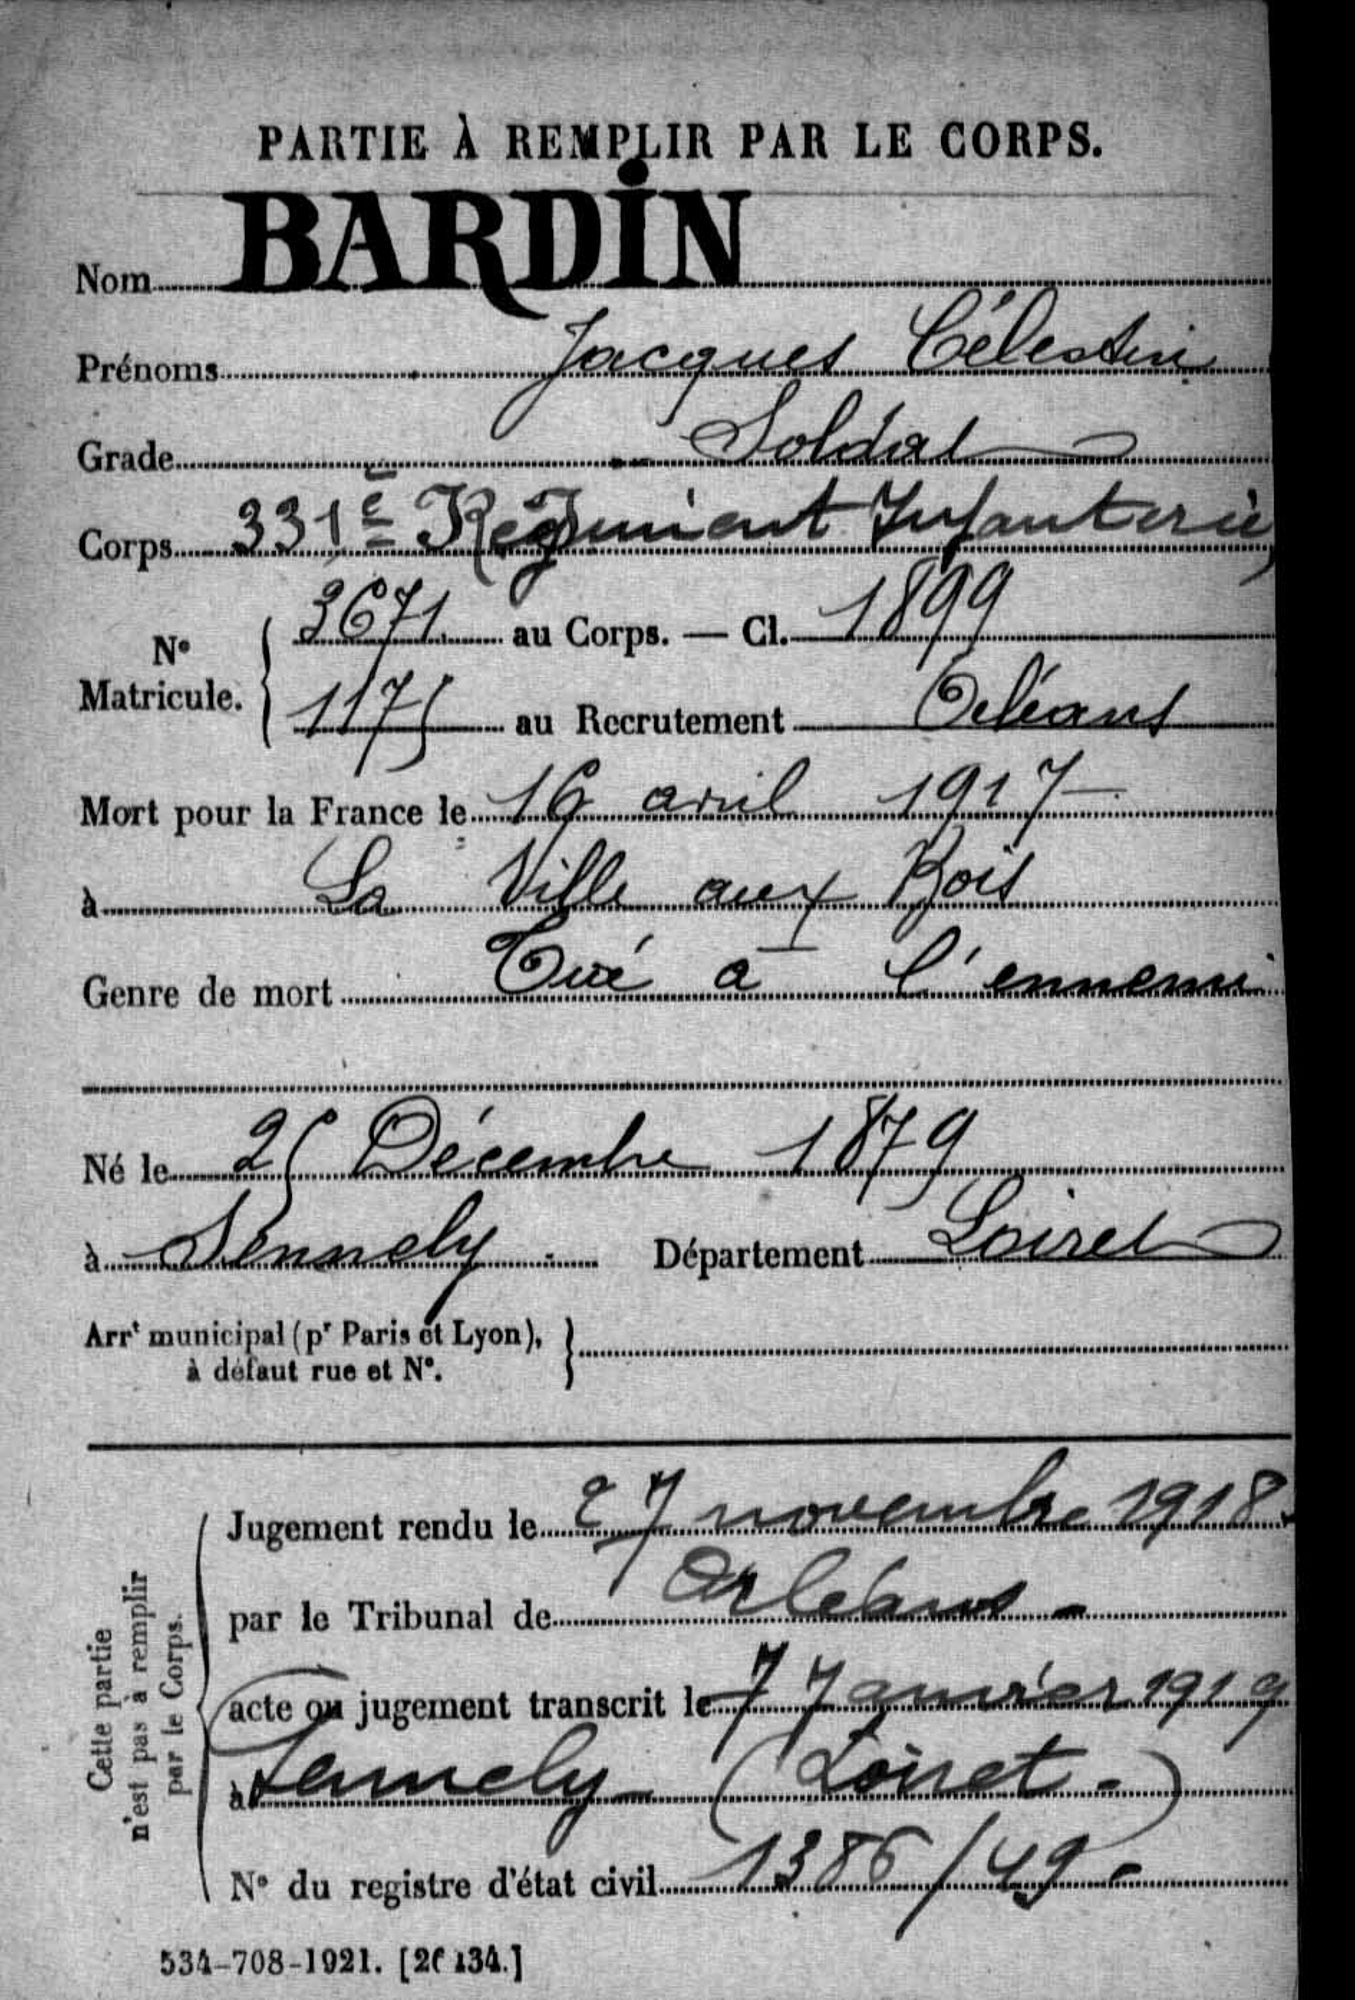 PARTIE À REMPLIR PAR LE CORPS.
Nom BARDIN
Prénoms Jacques Célestin
Grade Soldat
Corps 331e Régiment Infanterie
No Matricule. { 3671 au Corps. — Cl. 1899
1175 au Recrutement Orléans
Mort pour la France le 16 avril 1917
à La Ville aux Bois
Genre de mort Tué à l'ennemi
Né le 25 Décembre 1879
à Sennely Département Loiret
Arrt municipal (pr Paris et Lyon), }
à défaut rue et No.
Cette partie
n'est pas à remplir
par le Corps.
Jugement rendu le 27 novembre 1918
par le Tribunal de Orléans -
acte ou jugement transcrit le 7 Janvier 1919
à Sennely (Loiret - )
No du registre d'état civil 1386/49 -
534-708-1921. [26134.]